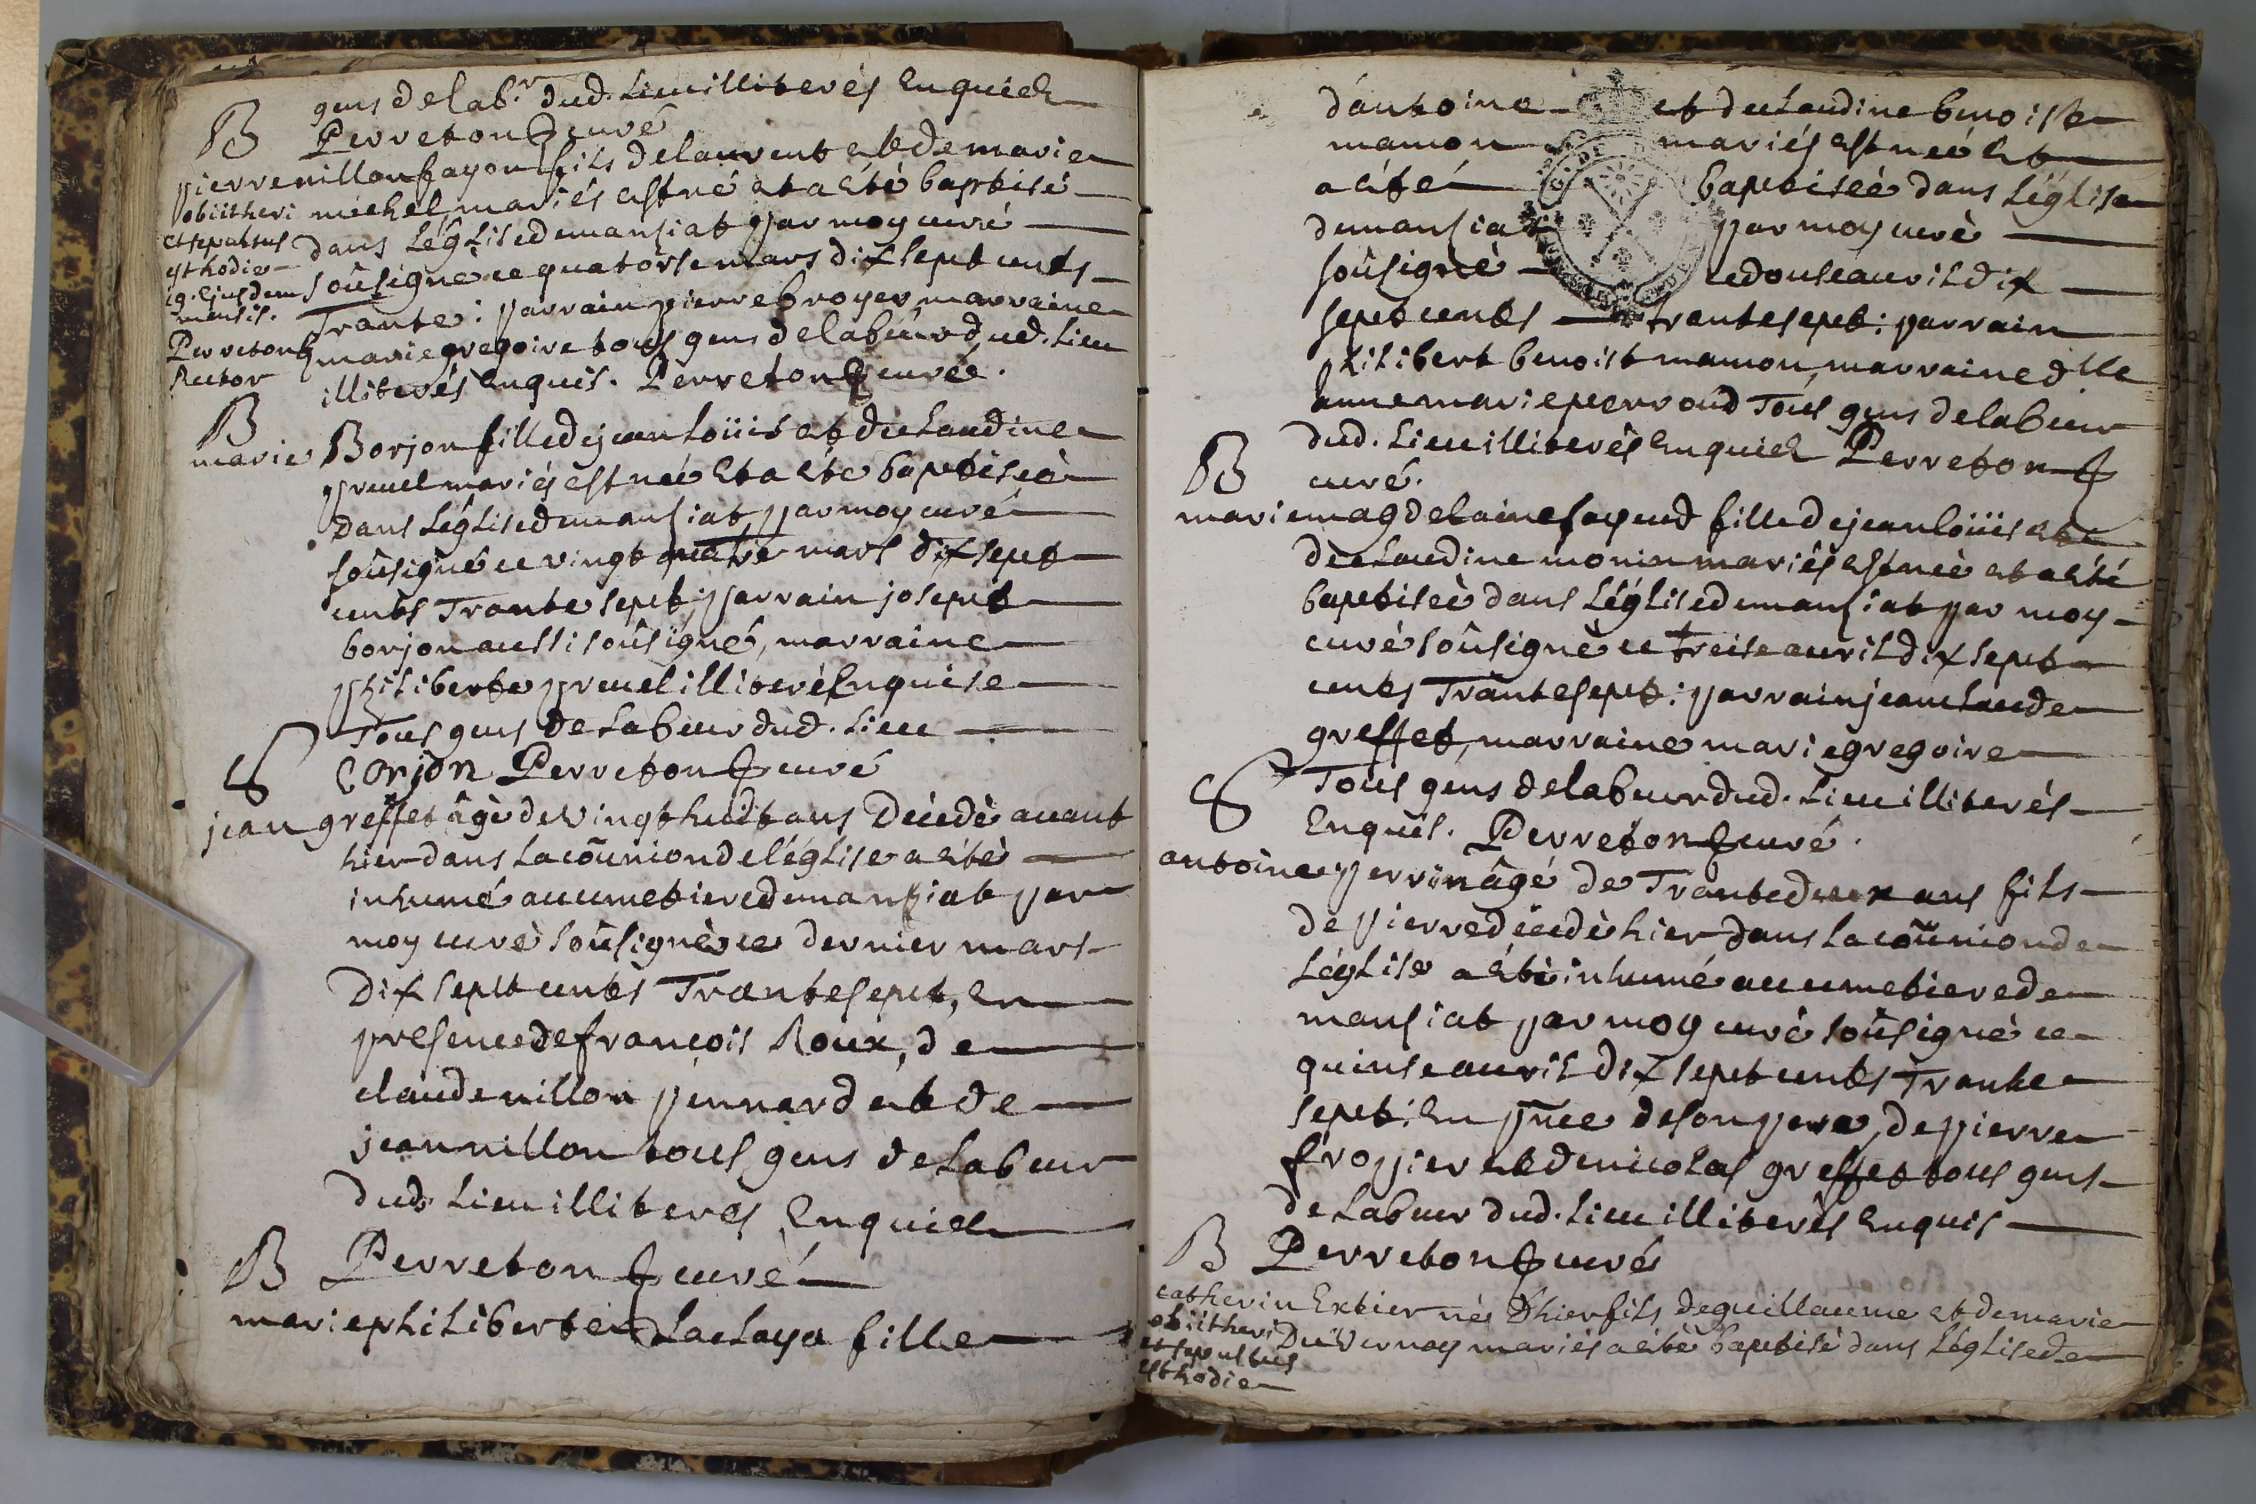 gens de lab.r dud. Lieu illiterés Enquis
B
Perreton curé
pierre nillon fayon fils de laurent et de marie
michel, mariés est né et a été baptisé
dans Léglise de mansiat par moy curé
soûsigné ce quatorse mars dix sept cents
Trante: parrain pierre broyer marraine
marie gregoire tous gens de labeur dud. Lieu
illiterés Enquis. Perreton curé.
obiit heri
et sepultus
est hodie
19. ejusdem
mensis.
Perreton
Rector
B
marie Borjon fille de jean Loüis et de Claudine
pruel mariés est neé et a été baptiseè
dans Léglise de mansiat, par moy curé
soûsigné ce vingt quatre mars dix sept
cents Trante sept; parrain joseph
borjon aussi soûsigné, marraine
philiberte pruel illiteré Enquise
Tous gens de Labeur dud. Lieu
Borjon Perreton curé
S
jean greffet âgè de vingt huit ans Décedè avant
hier dans La coûnion de léglise a été
inhumé au cimetiere de mansiat par
moy curè soûsignè ce dernier mars
Dix sept cents Trante sept, En
presence de françois Roux, de
claude nillon pennard et de
jean nillon tous gens de Labeur
dud. Lieu illiterés Enquis
B
Perreton curé
marie philiberte Laclaya fille
d'antoine et de Claudine benoist
mamon mariés est neé et
a été baptiseè dans Léglise
de mansiat par moy curè
soûsignè ce douse avril dix
sept cents trante sept: parrain
philibert benoist mamon, marraine dlle
anne marie perroud Tous gens de labeur
dud. Lieu illiterés Enquis Perreton
curé.
B
marie magdelaine fayeud fille de jean loüis et
de Claudine monin mariés est neè et a été
baptiseè dans Léglise de mansiat par moy
curé soûsignè ce treise avril dix sept
cents Trante sept: parrain jean claude
greffet, marraine marie gregoire
Tous gens de labeur dud. Lieu illiterés
Enquis. Perreton curé.
S
antoine perrin âgé de Trante deux ans fils
de pierre décedè hier dans La coûnion de
Léglise a été inhumé au cimetiere de
mansiat par moy curè soûsigné ce
quinse avril dix sept cents Trante
sept: En pñce de son pere, de pierre
fropier et de nicolas greffet tous gens
de Labeur dud. Lieu illiterés Enquis
B
Perreton curé
catherin Extier né d'hier fils de guillaume et de marie
Duvernay mariés a été baptisé dans Léglise de
obiit heri
et sepultus
est hodie